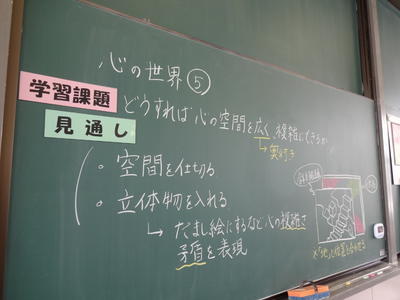 心の世界⑤
学習課題
どうすれば心の空間を広く、複雑にできるか
→奥行き
見通し
・空間を仕切る
・立体物を入れる
→だまし絵にするなど心の複雑さ
矛盾を表現